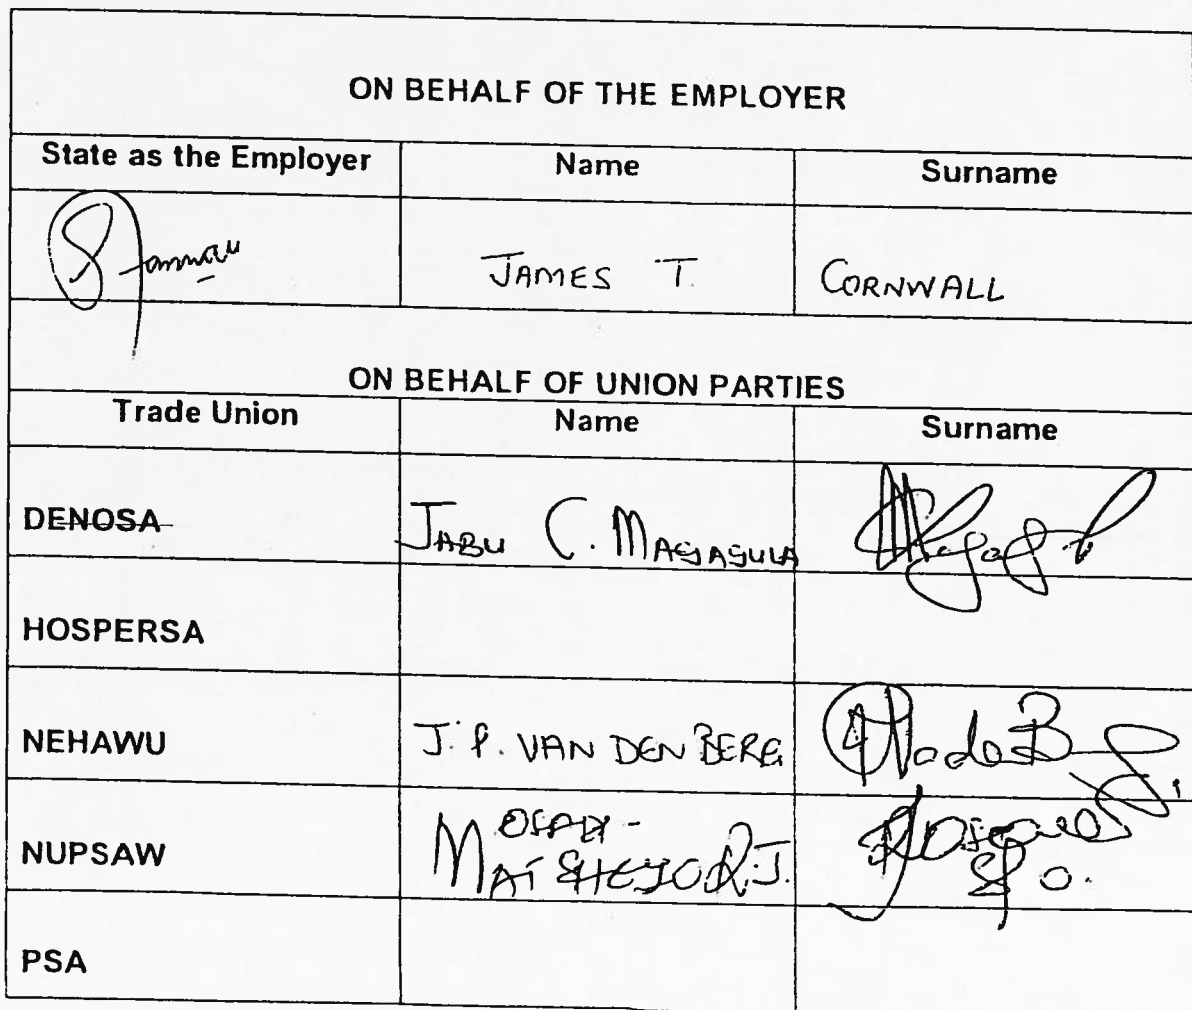 ON BEHALF OF THE EMPLOYER
State as the Employer Name Surname
JAMES T. CORNWALL
ON BEHALF OF UNION PARTIES
Trade Union Name Surname
DENOSA JABU C. MAGAGULA
HOSPERSA
NEHAWU J. P. VAN DEN BERG
NUPSAW R.J.
PSA